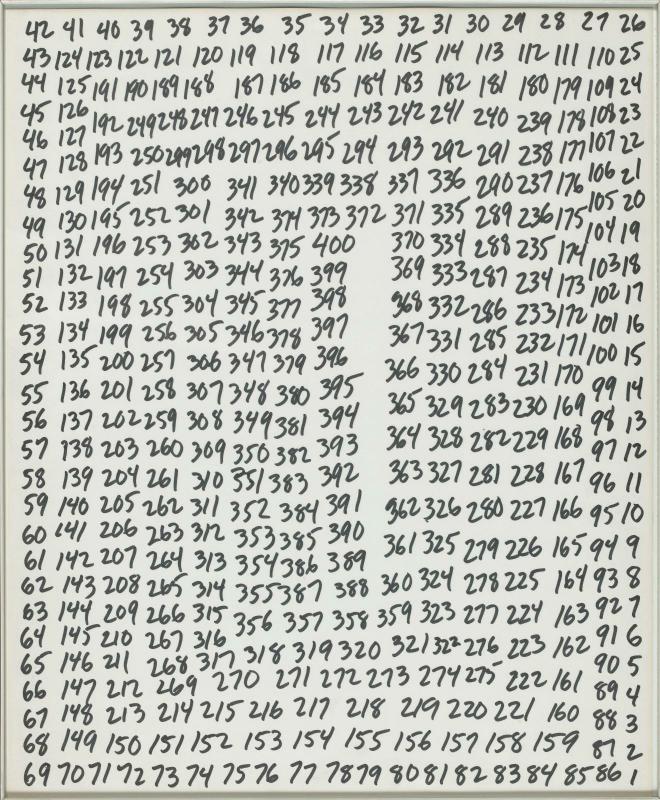 42 41 40 39 38 37 36 35 34 33 32 31 30 29 28 27 26
43 124 123 122 121 120 119 118 117 116 115 114 113 112 111 110 25
44 125 191 190 189 188 187 186 185 184 183 182 181 180 179 109 24
45 126 192 249 248 247 246 245 244 243 242 241 240 239 178 108 23
46 127 193 250 299 298 297 296 295 294 293 292 291 238 177 107 22
47 128
48 129 194 251 300 341 340 339 338 337 336 290 237 176 106 21
49 130 195 252 301 342 374 373 372 371 335 289 236 175 105 20
50 131 196 253 302 343 375 400 370 334 288 235 174 104 19
51 132 197 254 303 344 376 399 369 333 287 234 173 103 18
52 133 198 255 304 345 377 398 368 332 286 233 172 102 17
53 134 199 256 305 346 378 397 367 331 285 232 171 101 16
54 135 200 257 306 347 379 396 366 330 284 231 170 100 15
55 136 201 258 307 348 380 395 365 329 283 230 169 99 14
56 137 202 259 308 349 381 394 364 328 282 229 168 98 13
57 138 203 260 309 350 382 393 97 12
58 139 204 261 310 351 383 392 363 327 281 228 167 96 11
59 140 205 262 311 352 384 391 362 326 280 227 166 95 10
60 141 206 263 312 353 385 390 361 325 279 226 165 94 9
61 142 207 264 313 354 386 389
62 143 208 265 314 355 387 388 360 324 278 225 164 93 8
63 144 209 266 315 356 357 358 359 323 277 224 163 92 7
64 145 210 267 316 91 6
65 146 211 268 317 318 319 320 321 322 276 223 162 90 5
66 147 212 269 270 271 272 273 274 275 222 161 89 4
67 148 213 214 215 216 217 218 219 220 221 160 88 3
68 149 150 151 152 153 154 155 156 157 158 159 87 2
69 70 71 72 73 74 75 76 77 78 79 80 81 82 83 84 85 86 1